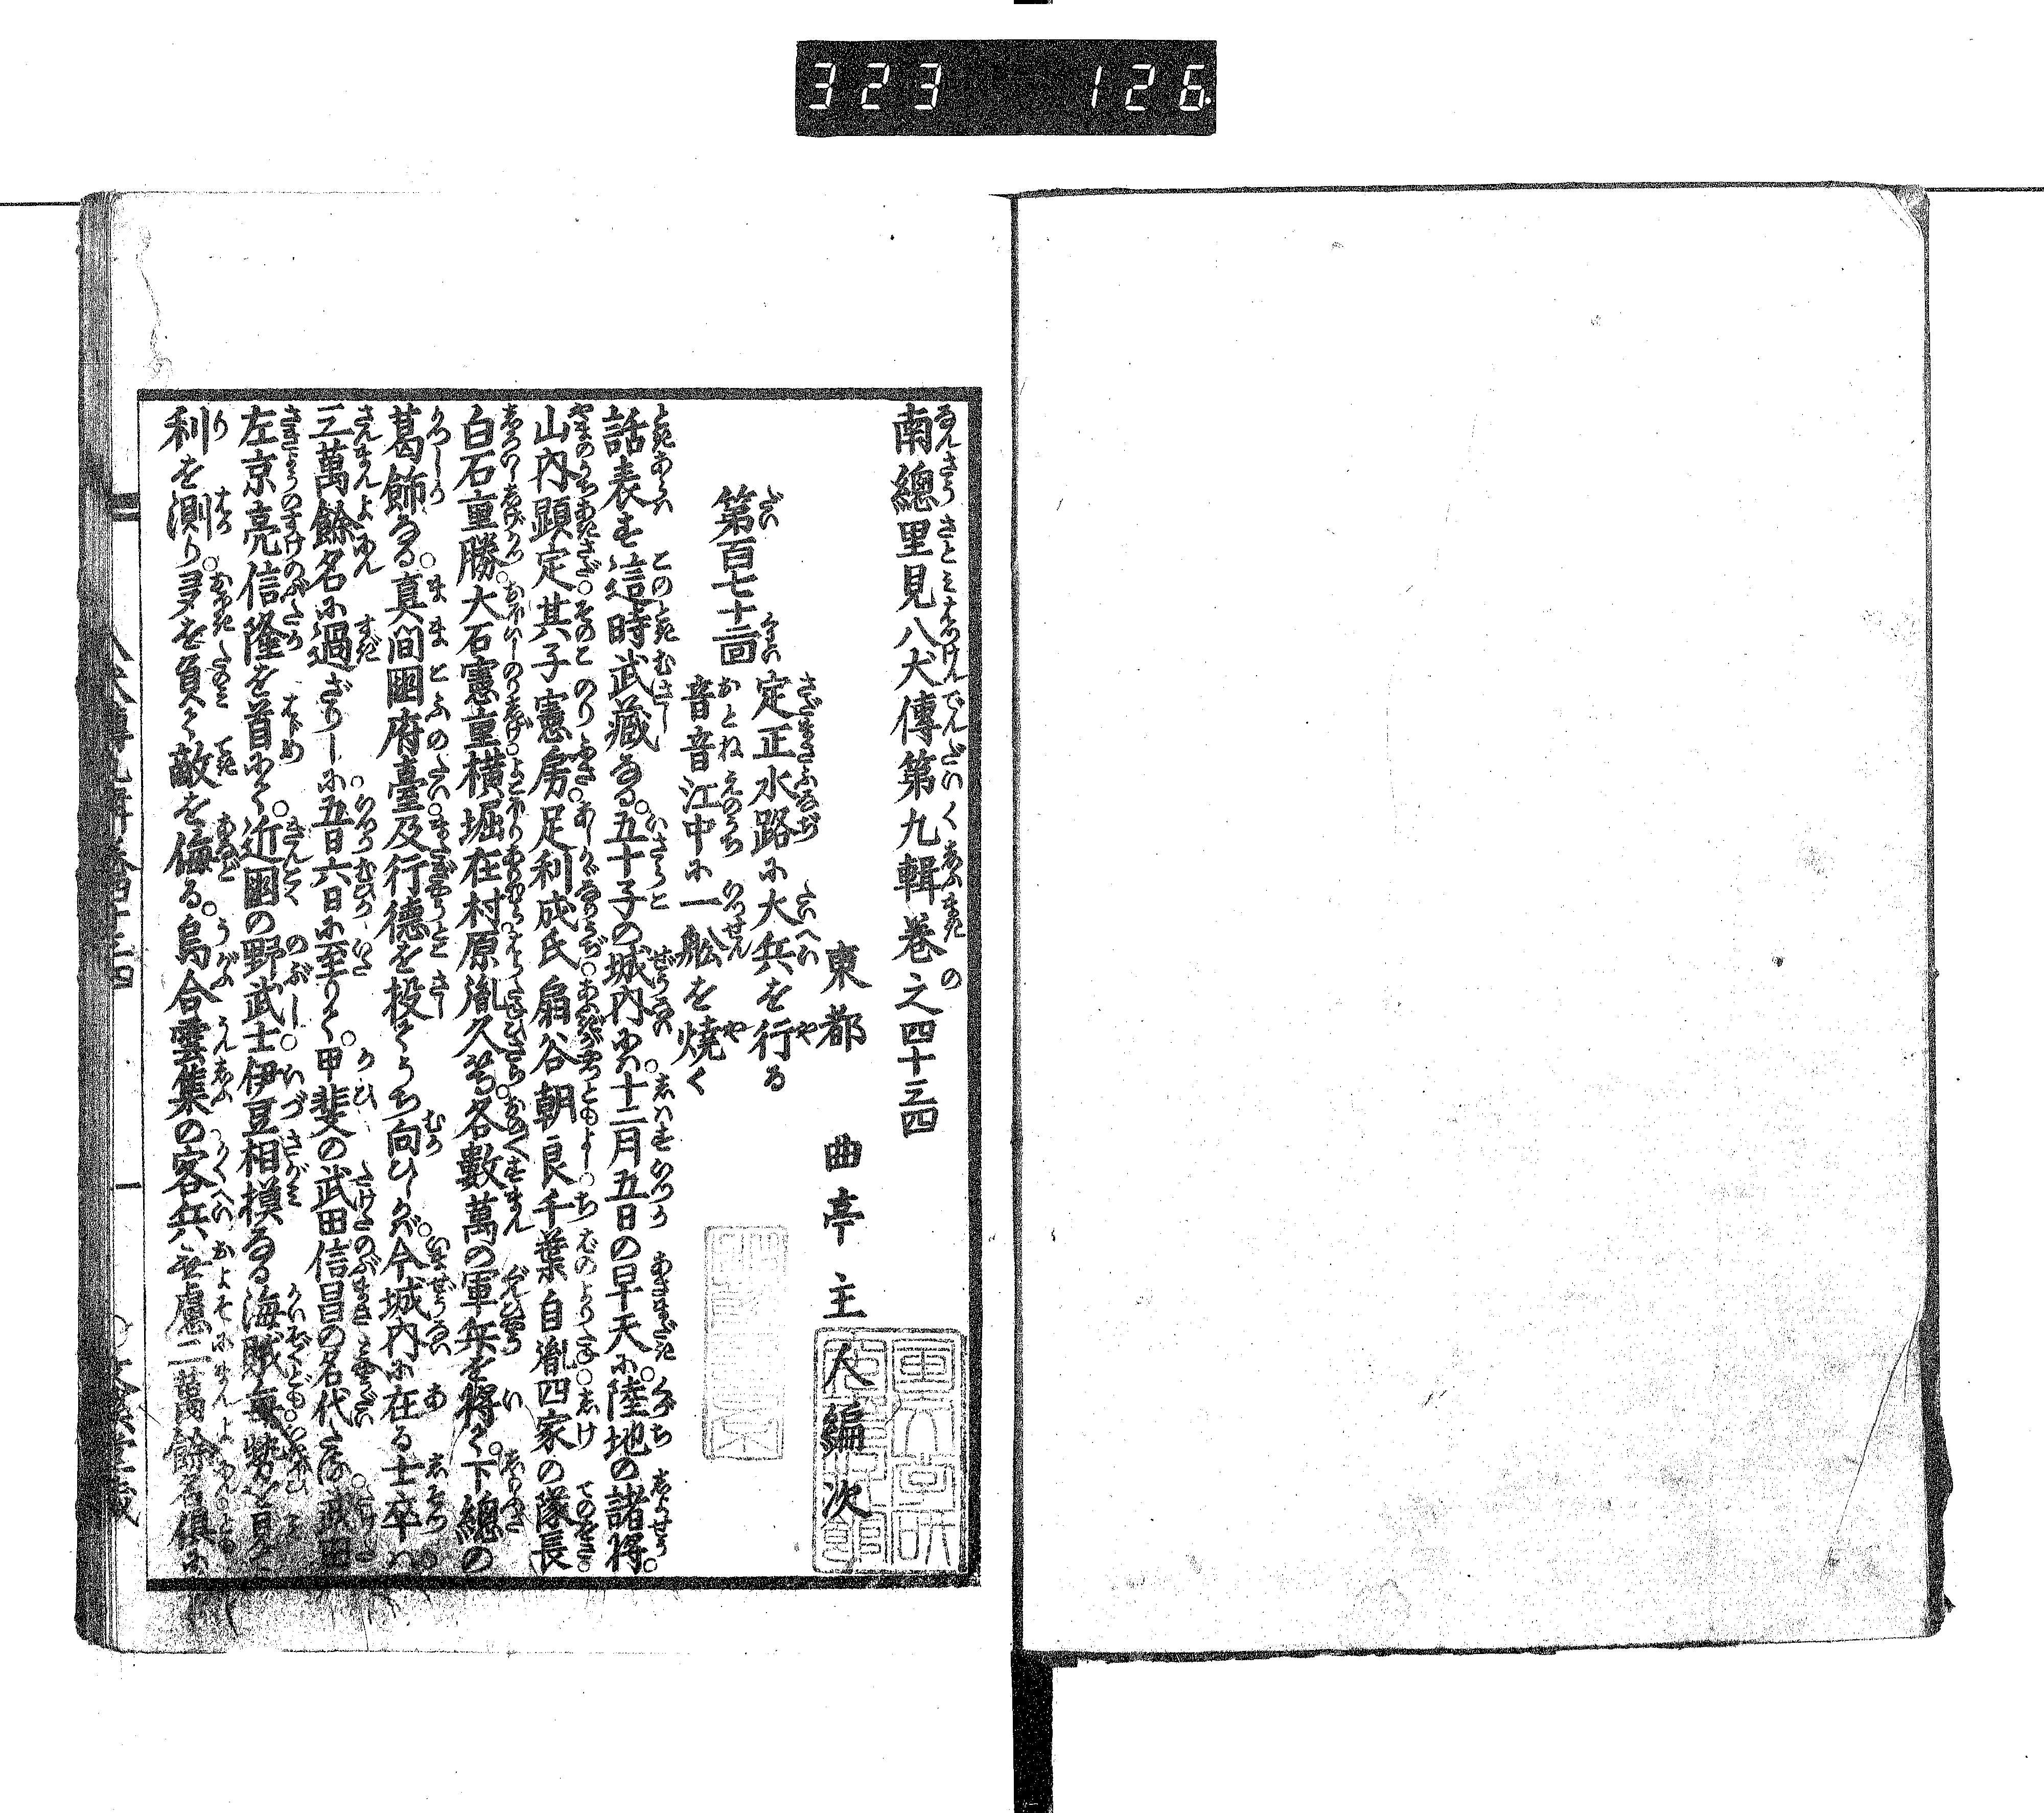 323 126
南總里見八犬傳第九輯巻之四十三四
東都 曲亭主人編次
第百七十三回
定正水路に大兵を行る
音音江中に一舩を焼く
話表す這時武藏なる。五十子の城内にハ。十二月五日の早天に。陸地の諸將。
山内顕定其子憲房。足利成氏。扇谷朝良。千葉自胤。四家の隊長
白石重勝。大石憲重。横堀在村。原胤久等。各數萬の軍兵を將て。下總の
葛飾なる。真間国府臺。及行德を投てうち向ひしかバ。今城内に在る士卒ハ。
三萬餘名に過ざりしに。五日六日に至りて。甲斐の武田信昌の名代たる。武田
左京亮信隆を首にて。近国の野武士。伊豆相模なる海賊毎。勢ひを見て
利を測り。多を負て敵を侮る。烏合雲集の客兵無慮二萬餘名俱に